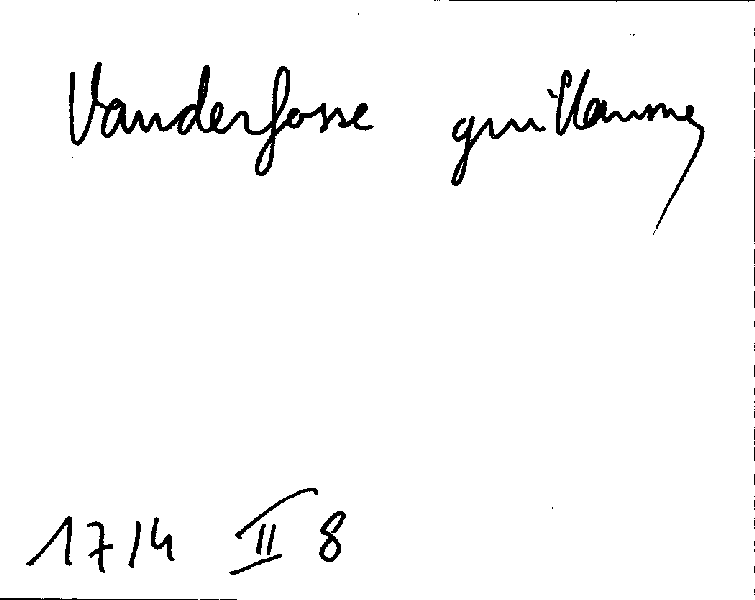 Vanderfosse guillaume
1714 II 8